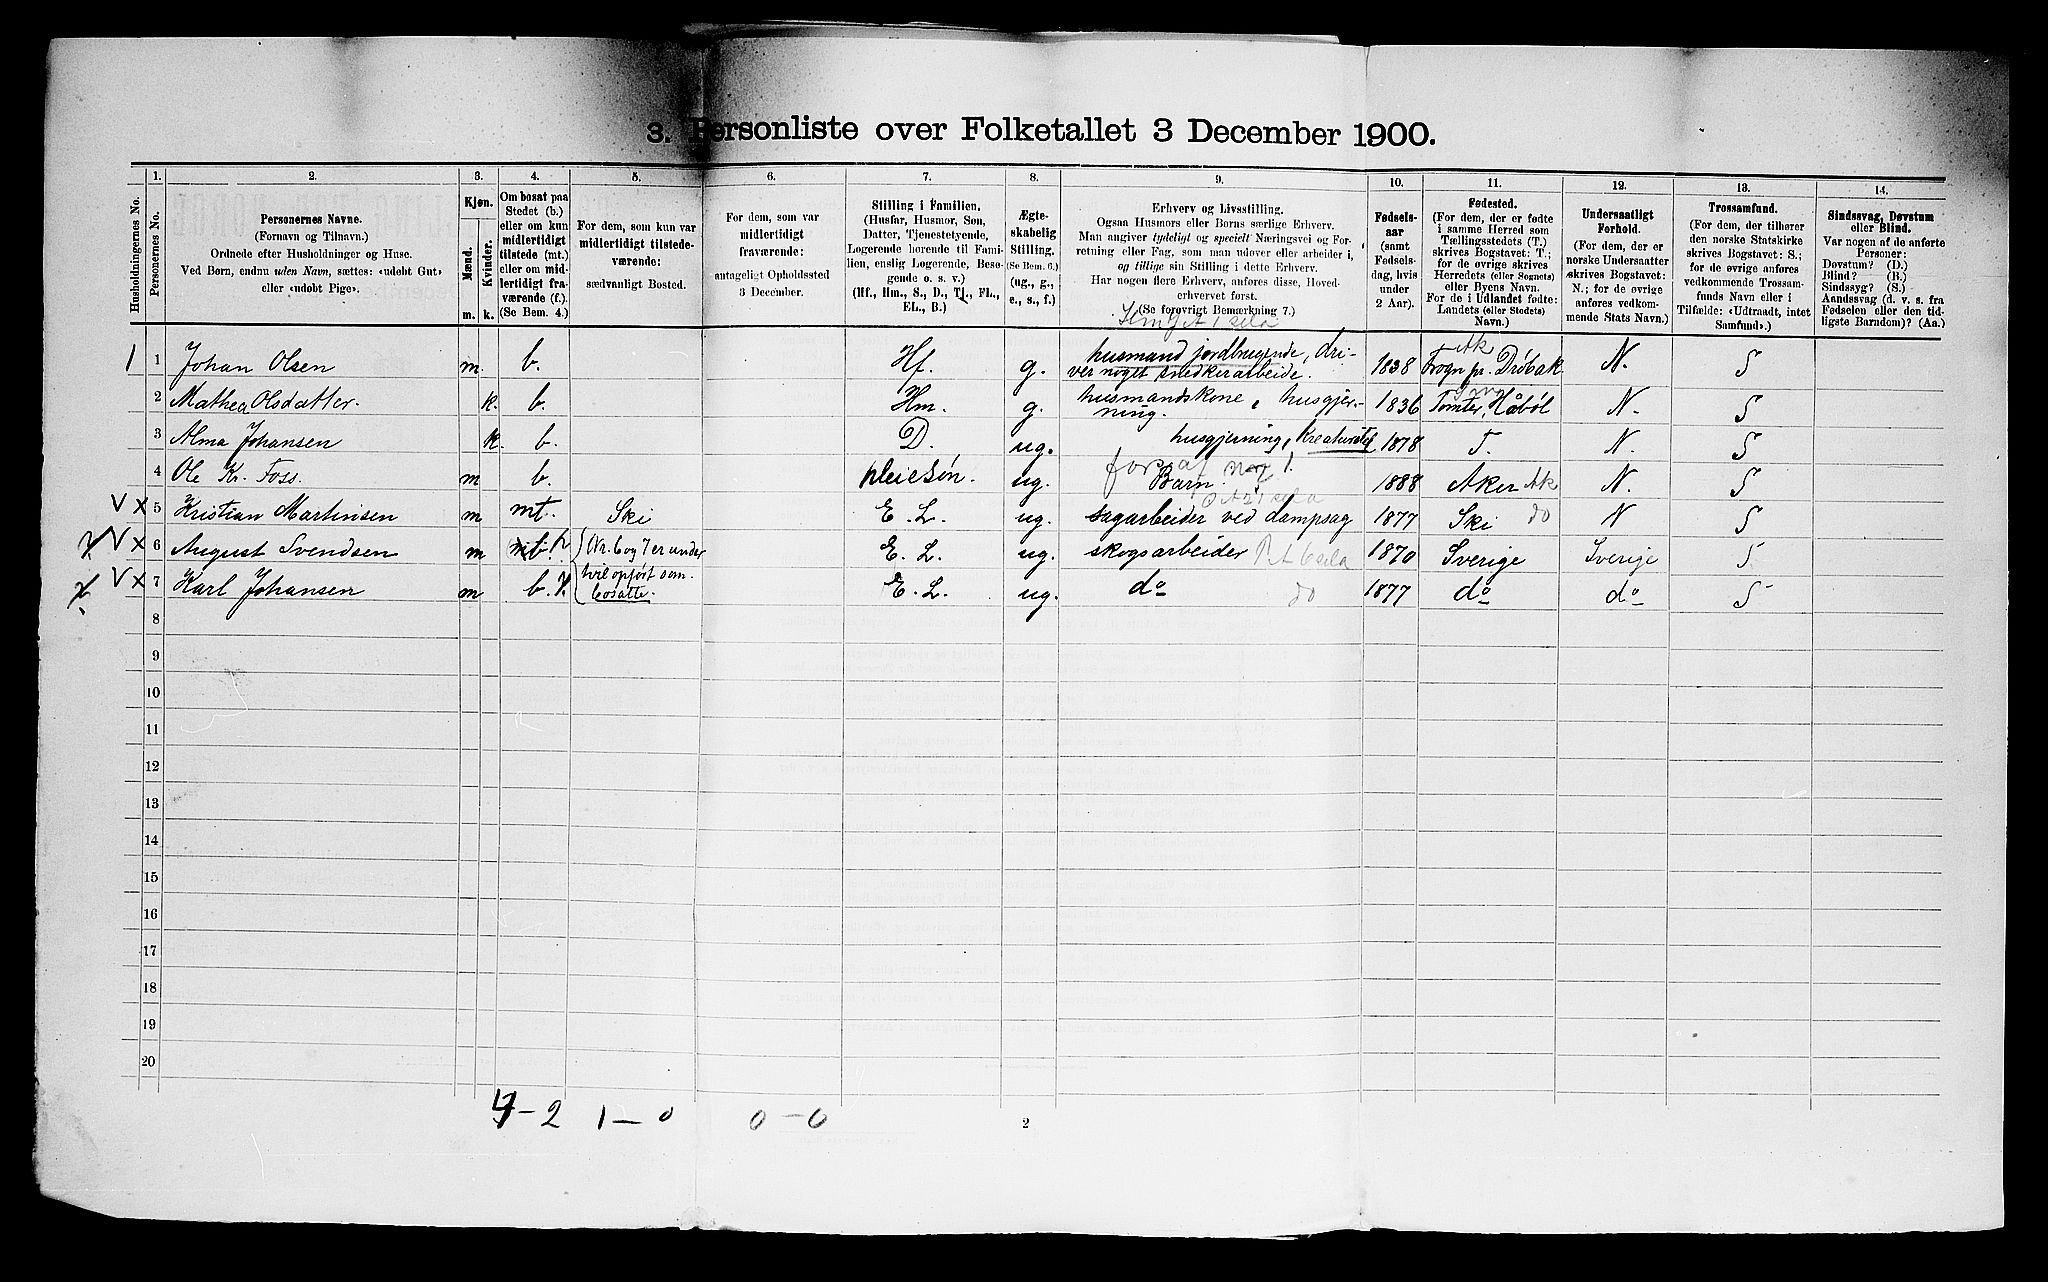 3. Personliste over Folketallet 3 December 1900.
Husholdningernes No.
1. Personernes No.
2. Personernes Navne.
(Fornavn og Tilnavn.)
Ordnede efter Husholdninger og Huse.
Ved Børn, endnu uden Navn, sættes: «udøbt Gut»
eller «udøbt Pige».
3. Kjøn.
Mænd. Kvinder.
m. k.
4. Om bosat paa
Stedet (b.)
eller om kun
midlertidigt
tilstede (mt.)
eller om mid-
lertidigt fra-
værende (f.).
(Se Bem. 4.)
5. For dem, som kun var
midlertidigt tilstede-
værende:
sædvanligt Bosted.
6. For dem, som var
midlertidigt
fraværende:
antageligt Opholdssted
3 December.
7. Stilling i Familien.
(Husfar, Husmor, Søn,
Datter, Tjenestetyende,
Logerende hørende til Fami-
lien, enslig Logerende, Besø-
gende o. s. v.)
(Hf., Hm., S., D., Tj., FL.,
EL., B.)
8. Ægte-
skabelig
Stilling.
(Se Bem. 6.)
(ug., g.,
e., s., f.)
9. Erhverv og Livsstilling.
Ogsaa Husmors eller Børns særlige Erhverv.
Man angiver tydeligt og specielt Næringsvei og For-
retning eller Fag, som man udøver eller arbeider i,
og tillige sin Stilling i dette Erhverv.
Har nogen flere Erhverv, anføres disse, Hoved-
erhvervet først.
(Se forøvrigt Bemærkning 7.)
10. Fødsels-
aar
(samt
Fødsels-
dag, hvis
under
2 Aar).
11. Fødested.
(For dem, der er fødte
i samme Herred som
Tællingsstedets (T.)
skrives Bogstavet: T.;
for de øvrige skrives
Herredets (eller Sognets)
eller Byens Navn.
For de i Udlandet fødte:
Landets (eller Stedets)
Navn.)
12. Undersaatligt
Forhold.
(For dem, der er
norske Undersaatter
skrives Bogstavet:
N.; for de øvrige
anføres vedkom-
mende Stats Navn.)
13. Trossamfund.
(For dem, der tilhører
den norske Statskirke
skrives Bogstavet: S.;
for de øvrige anføres
vedkommende Trossam-
funds Navn eller i
Tilfælde: «Udtraadt, intet
Samfund».)
14. Sindssvag, Døvstum
eller Blind.
Var nogen af de anførte
Personer:
Døvstum? (D.)
Blind? (B.)
Sindssyg? (S.)
Aandssvag (d. v. s. fra
Fødselen eller den tid-
ligste Barndom)? (Aa.)
1 1 Johan Olsen m. b. Hf. g. husmand jordbrugende, dri-
ver noget snedkerarbeide. 1838 Frogn pr. Drøbak Ak N. S
2 Mathea Olsdatter. k. b. Hm. g. husmandskone, husgjer-
ning. 1836 Tomter, Håbøl N. S
3 Alma Johansen k. b. D. ug. husgjerning, Kreaturstel 1878 T. N. S
4 Ole Kr. Foss. m b. pleiesøn. ug. fors. af No 1. Barn. 1888 Aker Ak N. S
V x 5 Kristian Martinsen m mt. Ski E. L. ug. sagarbeider ved dampsag 1877 Ski do N S
V x 6 August Svendsen m b. Nr. 6 og 7 er under E. L. ug. skogsarbeider 1870 Sverige Sverige S
V x 7 Karl Johansen m b. tvil opført som
bosatte. E. L. ug. do do 1877 do do S
8
9
10
11
12
13
14
15
16
17
18
19
20
4-2 1-0 0-0
2